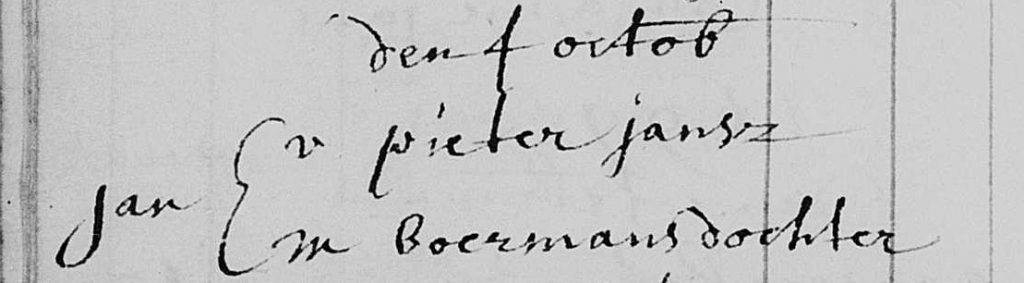 den 4 octob
v pieter jansz
jan
m boermans dochter